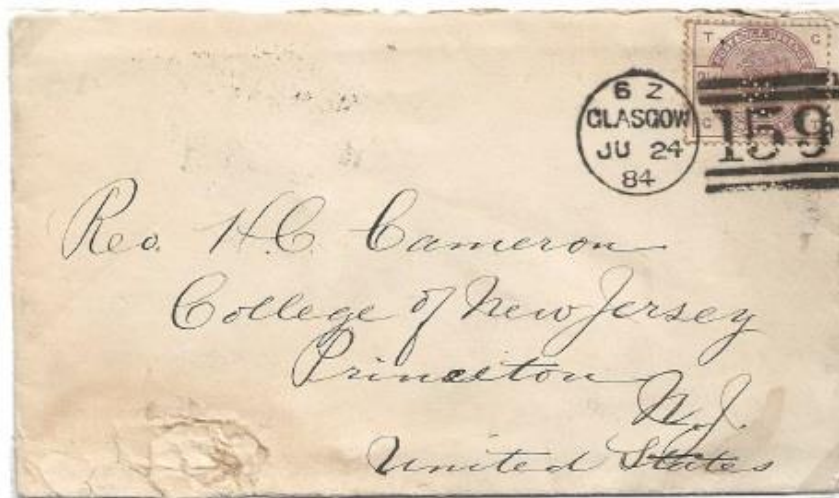 T G
6 Z
GLASGOW
JU 24
84
159
G T
Rev. H.C. Cameron
College of New Jersey
Princeton
N.J.
United States